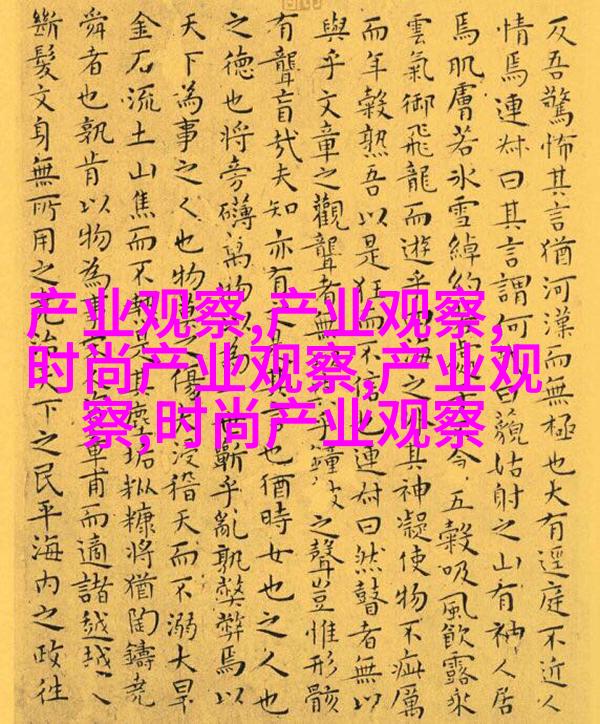 反吾驚怖其言猶河漢而無極也大有逕庭不近人
情焉連叔曰其言謂何曰藐姑射之山有神人居
焉肌膚若氷雪綽約五穀吸風飲露乘
雲氣御飛龍而遊乎海之外其神凝使物不疵厲
而年穀熟吾以是狂而不信也連叔曰然瞽者無以
與乎文章之觀聾者無乎鐘之聲豈惟形骸
有聾盲哉夫知亦有之其言也猶時女也之人也
之德也將旁礴萬物以為世蘄乎亂孰弊弊焉以
天下為事之人也物莫之傷大浸稽天而不溺大旱
金石流土山焦而不熱是其塵垢粃糠將猶陶鑄堯
舜者也孰肯以物為事章甫而適諸越越人
斷髮文身無所用之堯治天下之民平海内之政往
产业观察,产业观察,
时尚产业观察,产业观
察,时尚产业观察